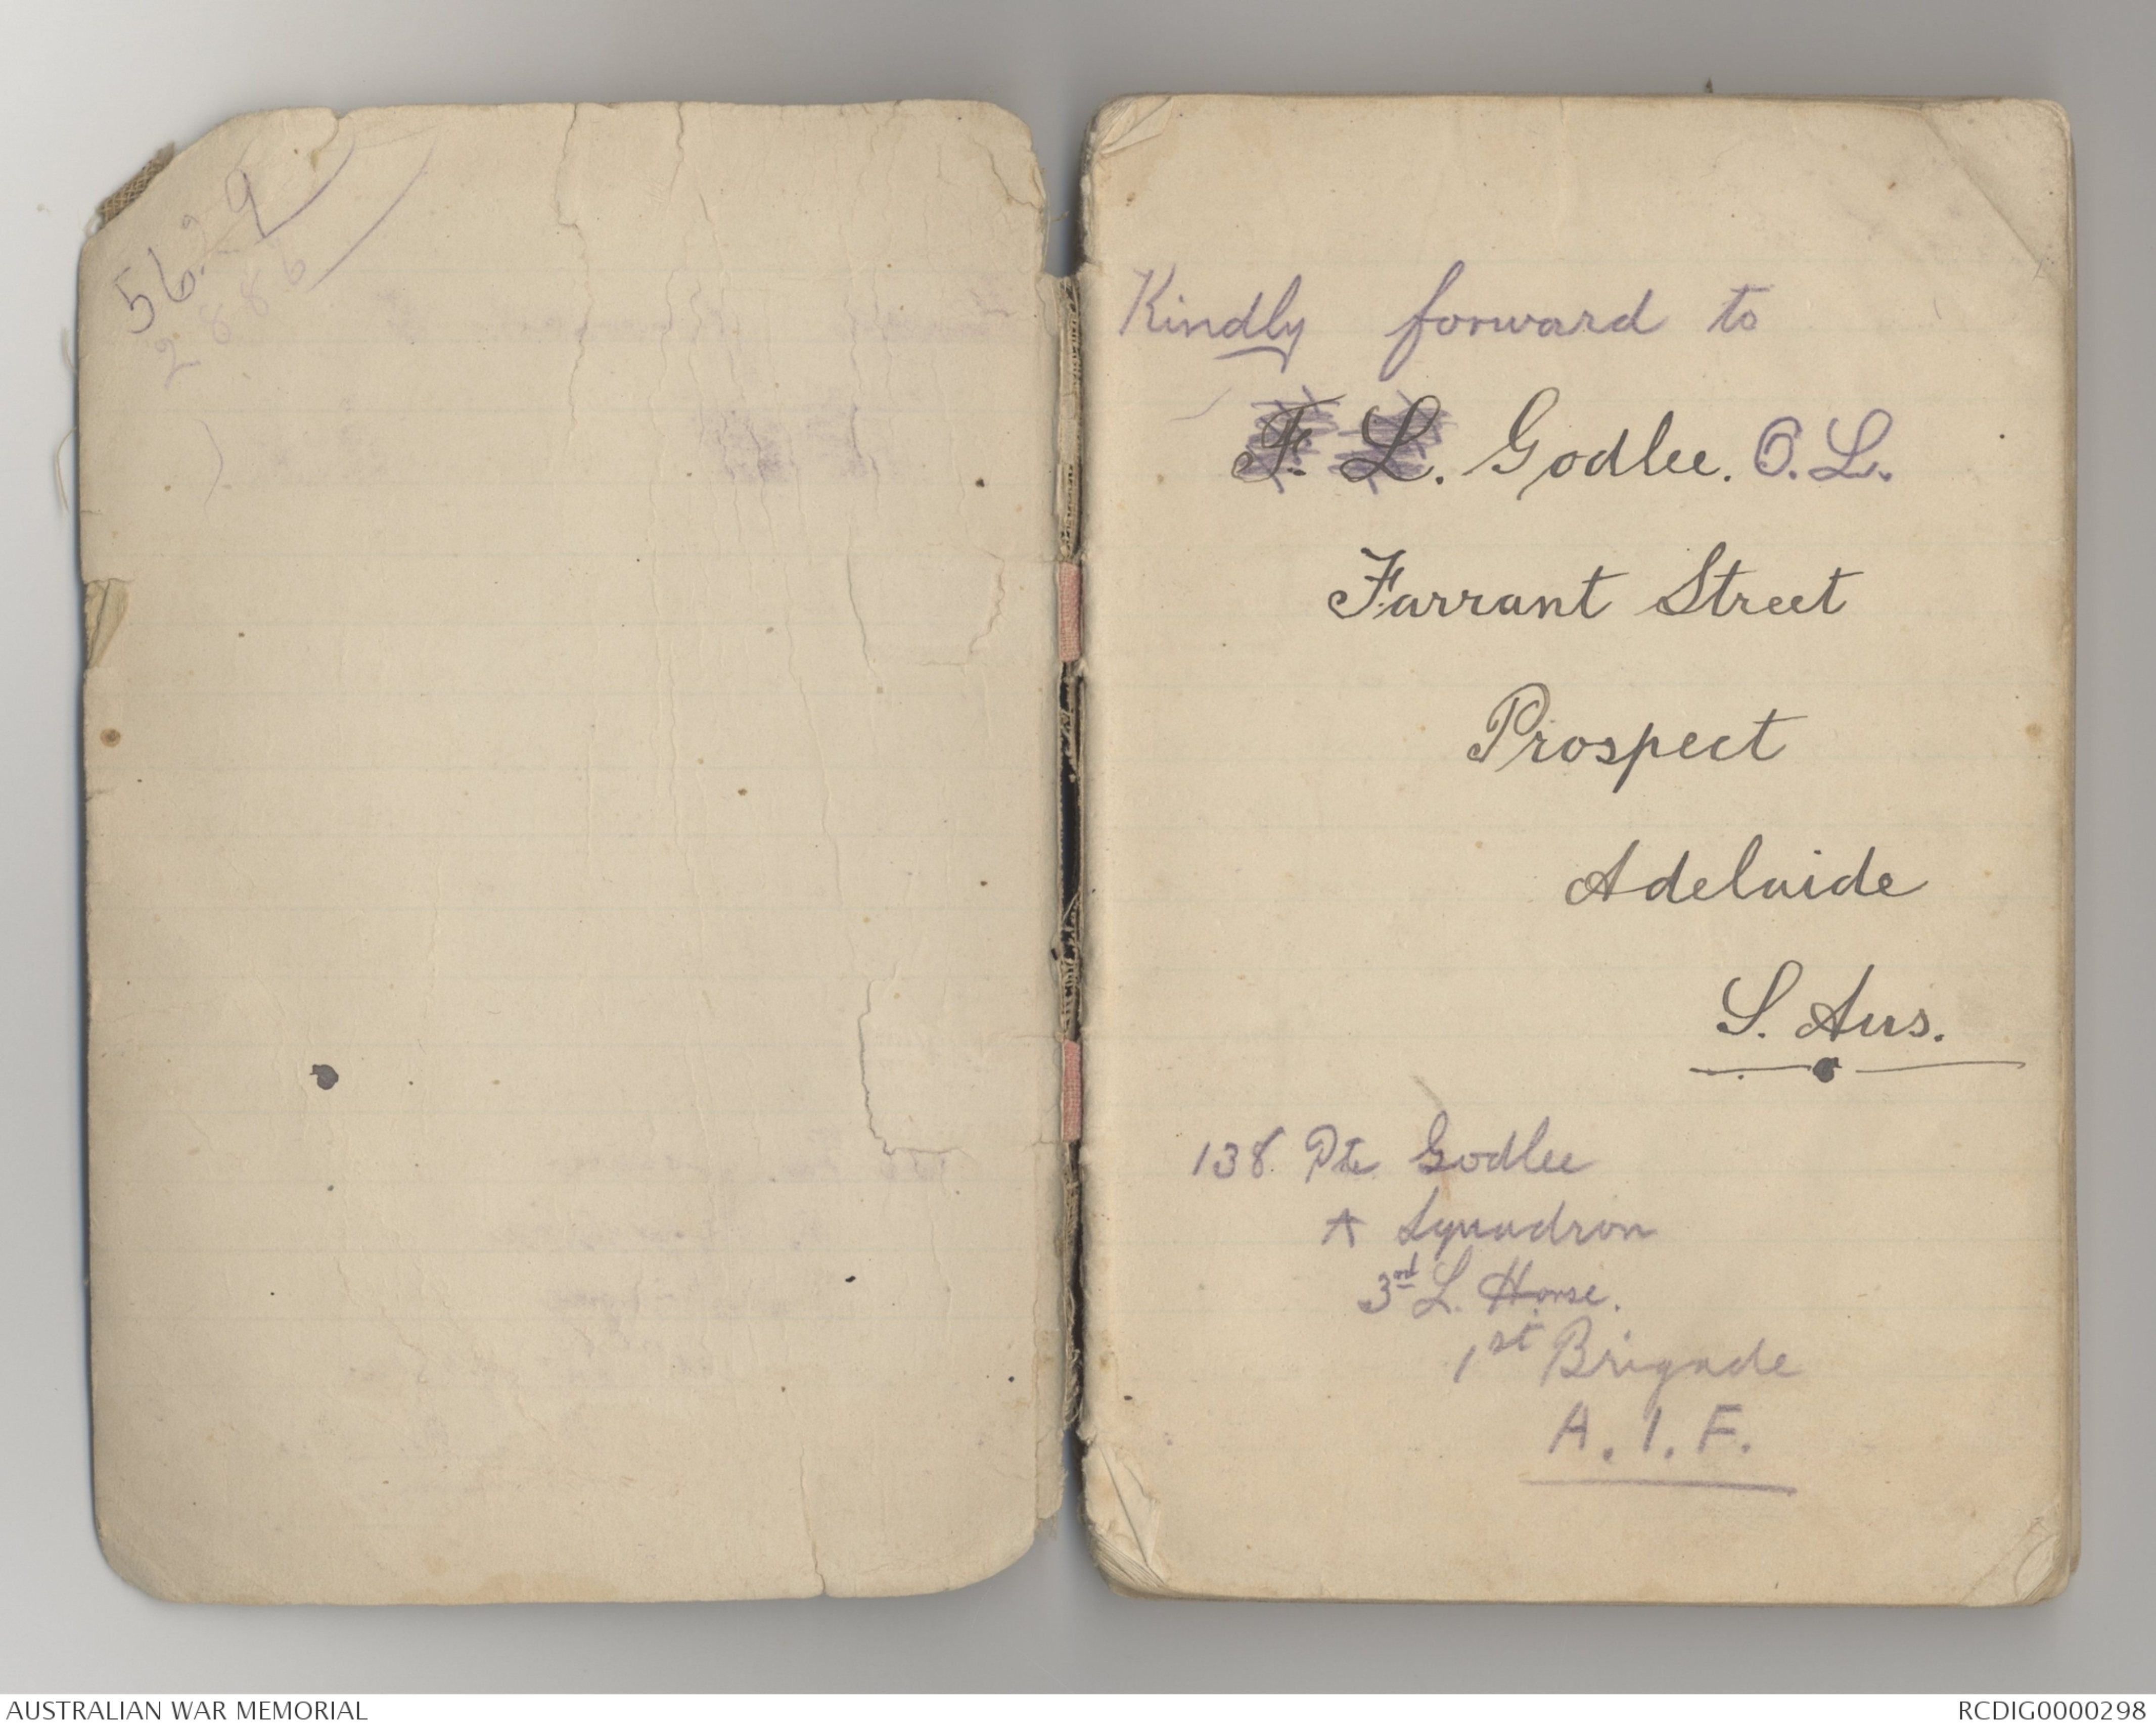 5629
2886
Kindly forward to
F. L. Godlee. O. L.
Farrant Street
Prospect
Adelaide
S. Aus.
138 Pte Godlee
A Squadron
3rd L. Horse.
1st Brigade
A. I. F.
AUSTRALIAN WAR MEMORIAL
RCDIG0000298